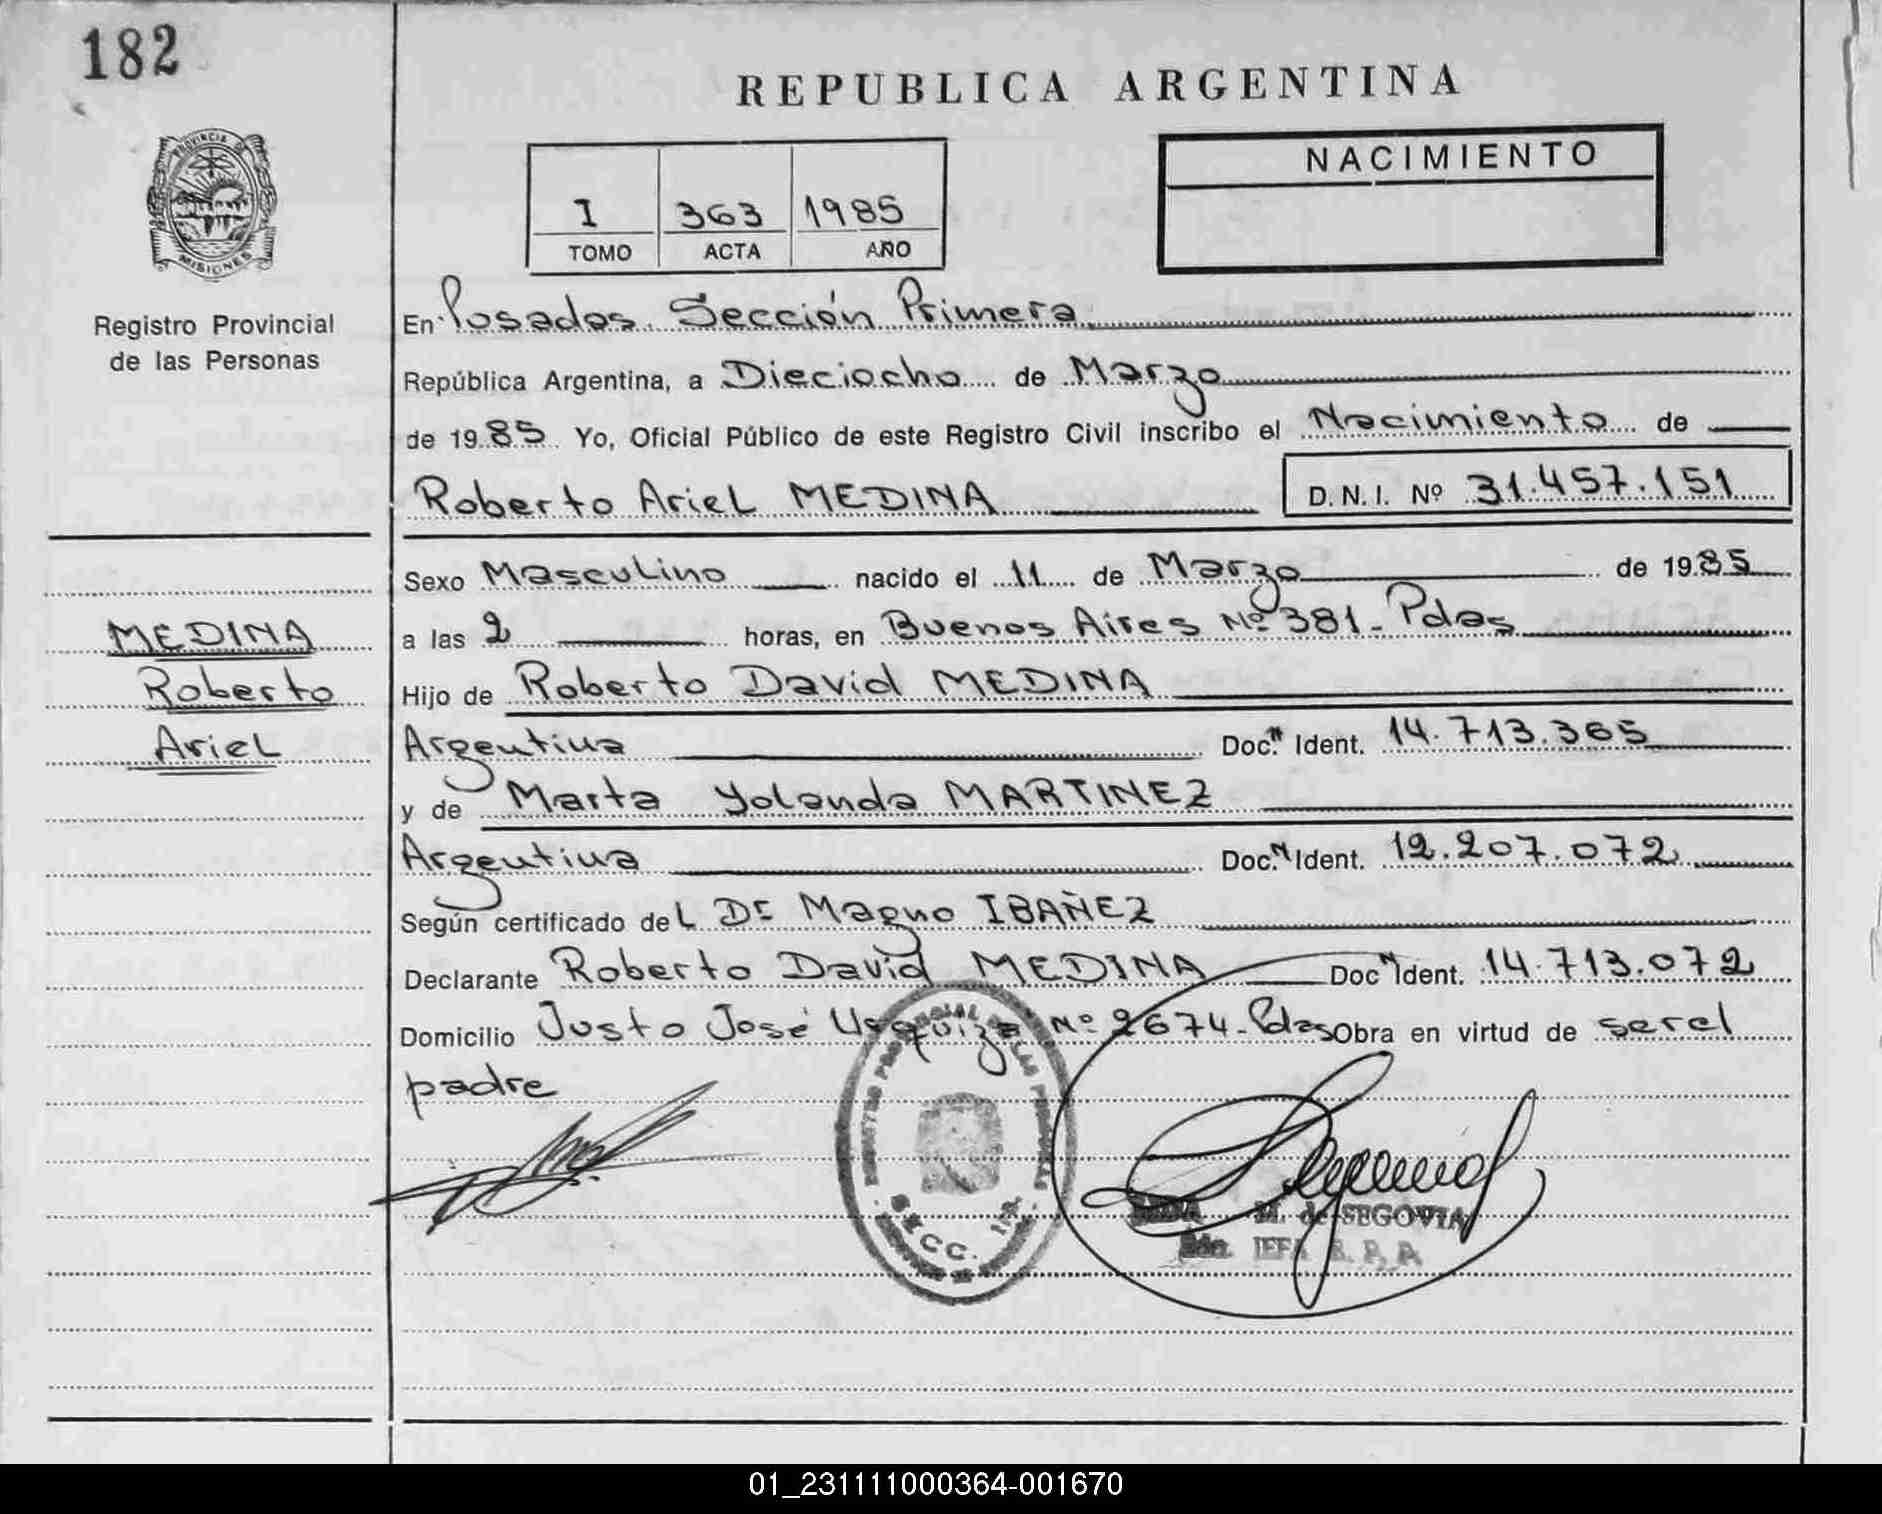 182
REPUBLICA ARGENTINA
PROVINCIA DE
MISIONES
Registro Provincial
de las Personas
I 363 1985
TOMO ACTA AÑO
NACIMIENTO
En Posadas. Sección Primera
República Argentina, a Dieciocho de Marzo
de 1985 Yo, Oficial Público de este Registro Civil inscribo el Nacimiento de
Roberto Ariel MEDINA D.N.I. Nº 31.457.151
Sexo Masculino nacido el 11 de Marzo de 1985
a las 2 horas, en Buenos Aires Nº 381- Pdas
MEDINA
Roberto
Ariel
Hijo de Roberto David MEDINA
Argentina Doc. Ident. 14.713.365
y de Marta Yolanda MARTINEZ
Argentina Doc. Ident. 12.207.072
Según certificado del Dr Magno IBAÑEZ
Declarante Roberto David MEDINA Doc Ident. 14.713.072
Domicilio Justo José Urquiza Nº 2674-Pdas Obra en virtud de ser el
padre
SECC. 1ra.
M. de SEGOVIA
JEFA R. P. P.
01_231111000364-001670